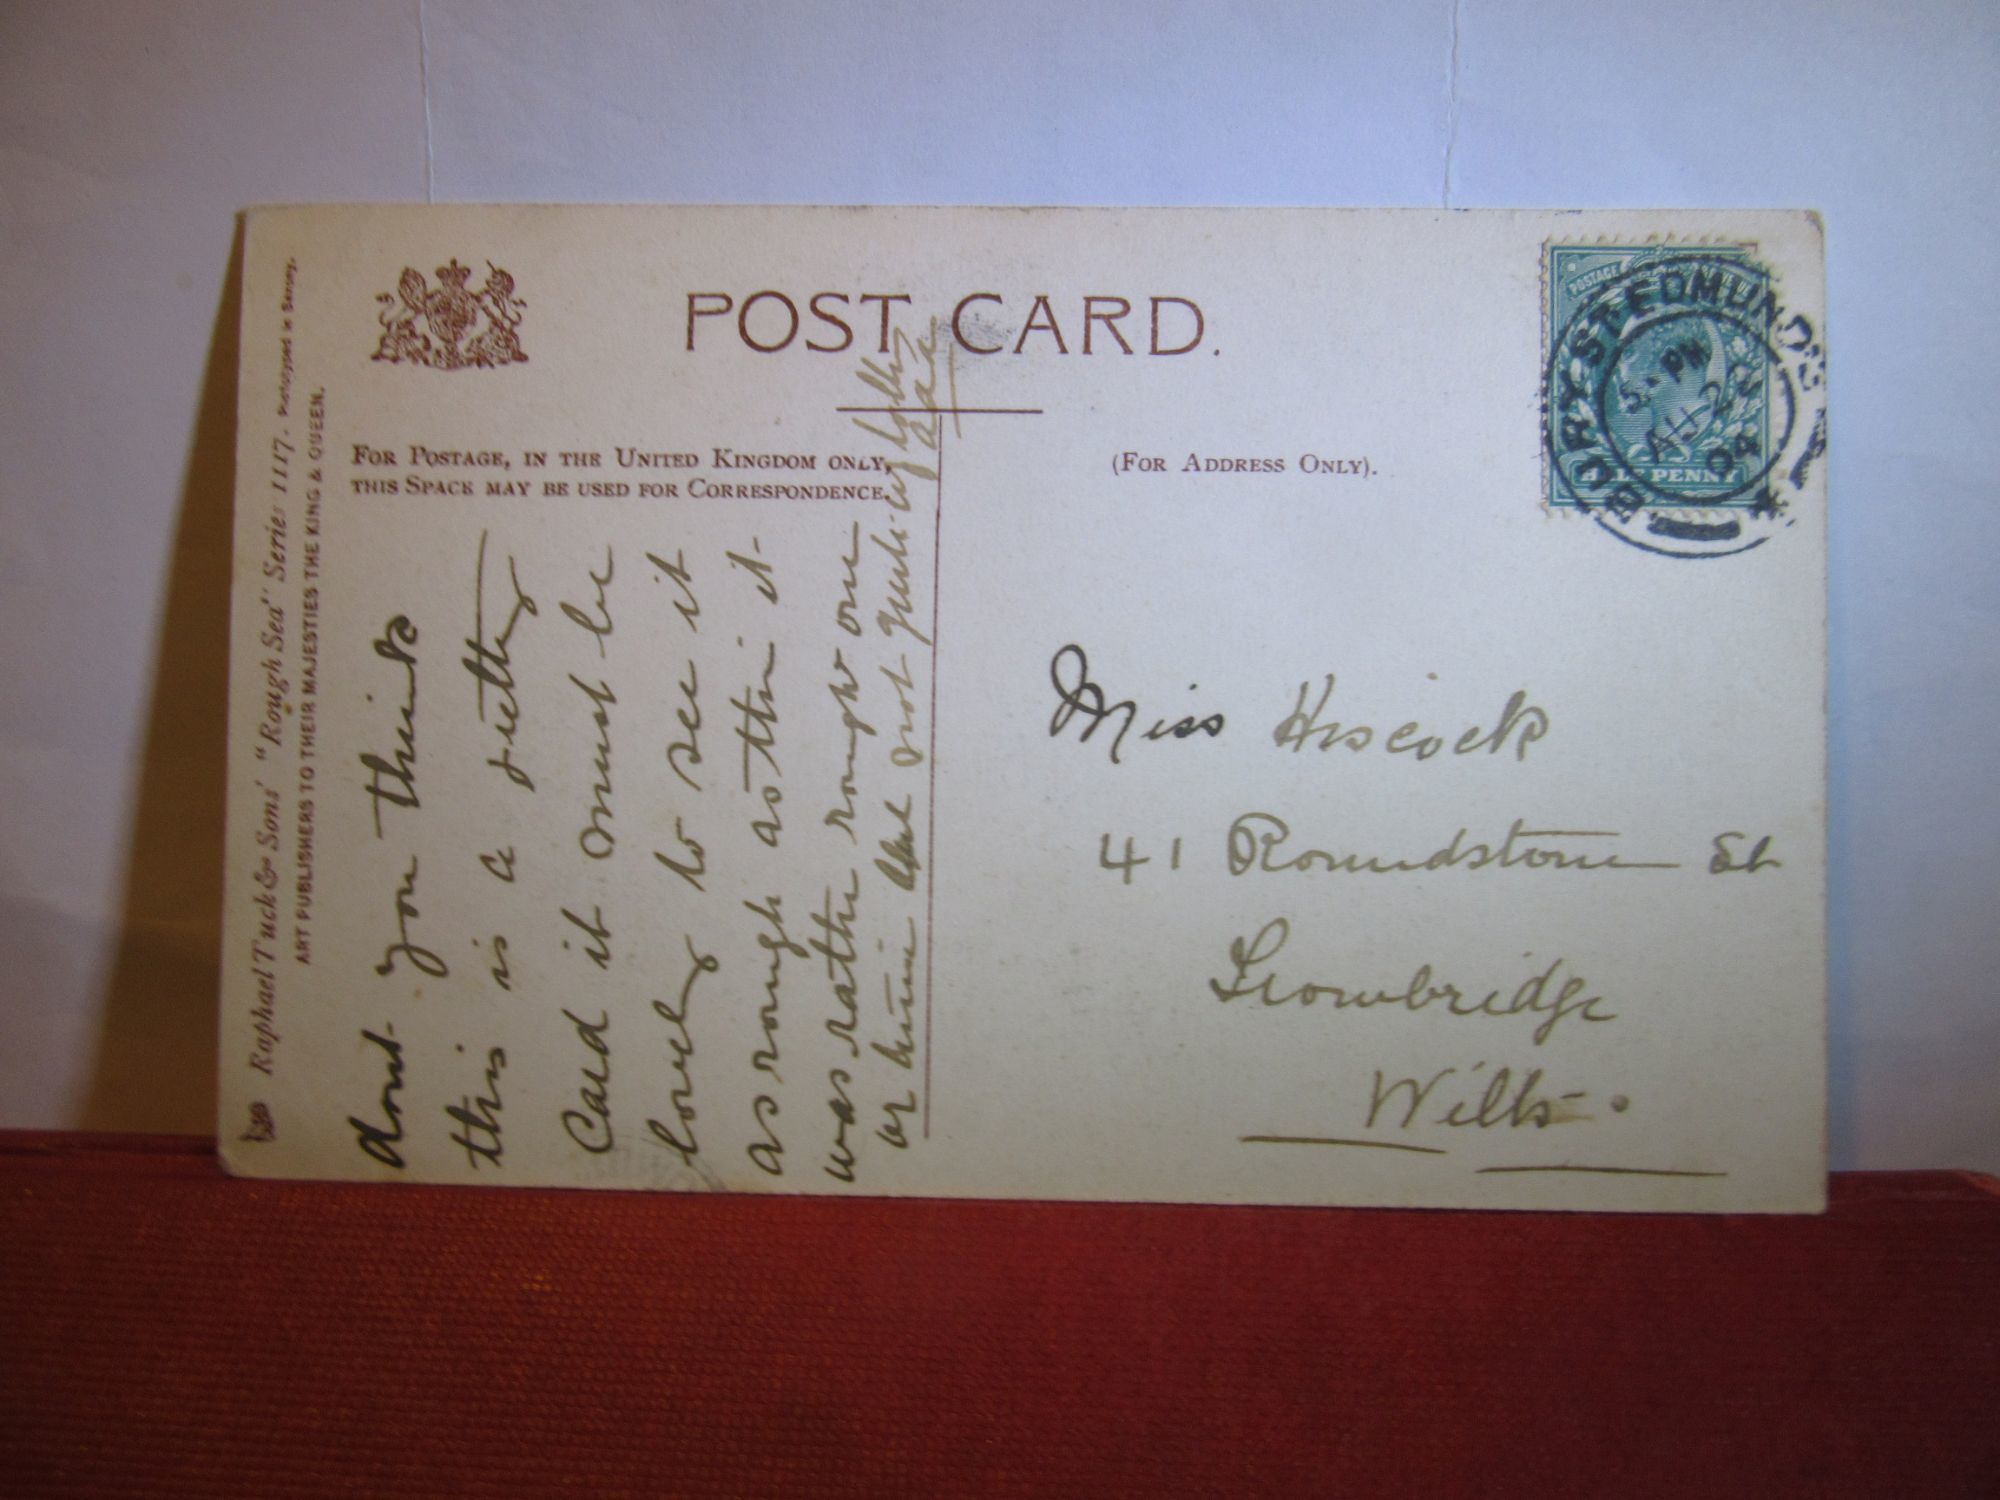 Raphael Tuck & Sons' "Rough Sea" Series 1117. Photogyped in Saxony.
ART PUBLISHERS TO THEIR MAJESTIES THE KING & QUEEN.
POST CARD.
FOR POSTAGE, IN THE UNITED KINGDOM ONLY,
THIS SPACE MAY BE USED FOR CORRESPONDENCE.
(FOR ADDRESS ONLY).
POSTAGE
HALF PENNY
BURY ST EDMUNDS
5 - PM
AU 22
04
dont you think
this is a pretty
Card it must be
lovely to see it
as rough as this it
was rather rough one
not quite
Miss Hiscock
41 Roundstone St
Trowbridge
Wilts.